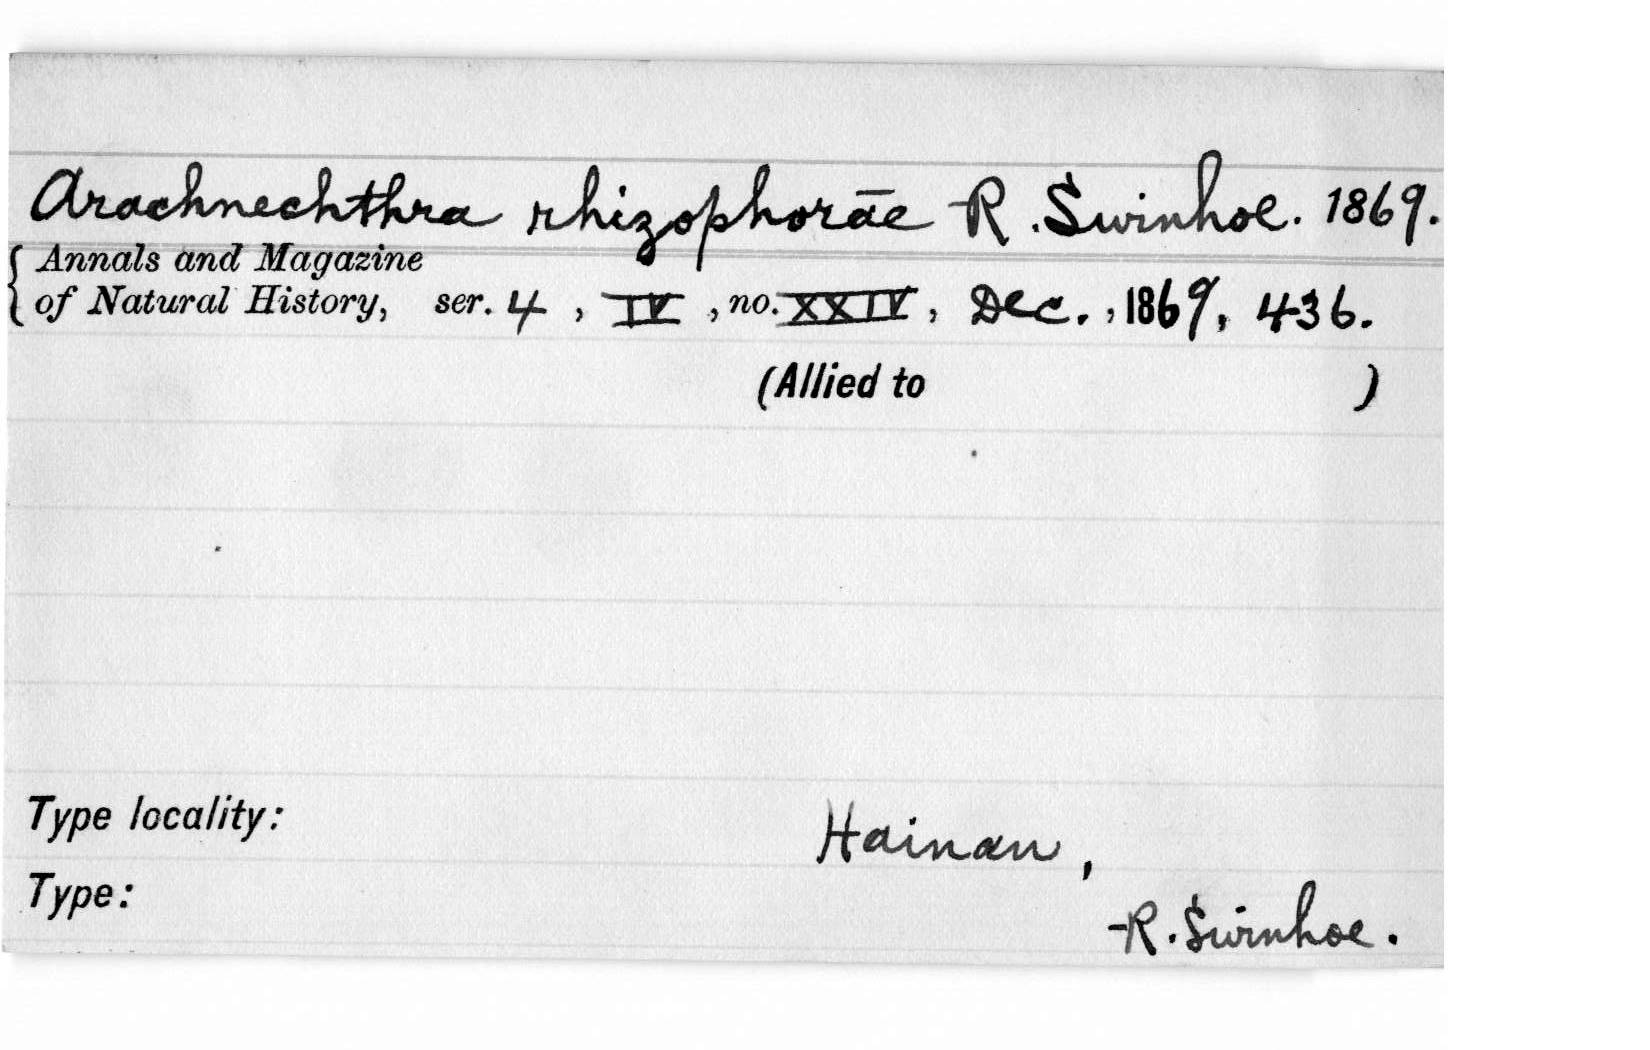 Arachnechthra rhizophorāe R. Swinhoe. 1869.
{ Annals and Magazine
of Natural History, ser. 4, IV, no. XXIV, Dec., 1869, 436.
(Allied to )
Type locality: Hainan,
Type: R. Swinhoe.